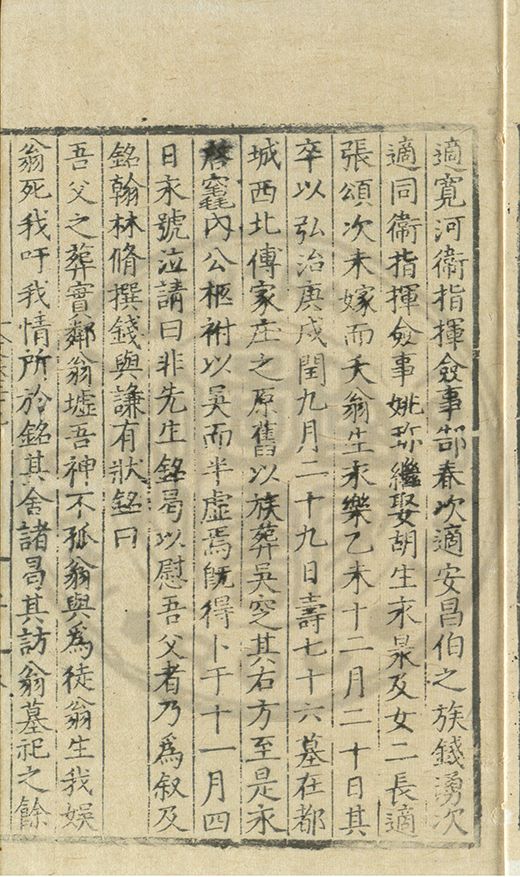 適寬河衛指揮僉事郜春次適安昌伯之族錢湧次
適同衛指揮僉事姚珎繼娶胡生永昶及女二長適
張頌次未嫁而夭翁生永樂乙未十二月二十日其
卒以弘治庚戌閏九月二十九日壽七十六墓在都
城西北傅家庄之原舊以族葬吳窆其右方至是永
啓竁内公柩祔以吳而半虛焉旣得卜于十一月四
日永號泣請曰非先生銘曷以慰吾父者乃爲叙及
銘翰林脩撰錢與謙有狀銘曰
吾父之葬實鄰翁墟吾神不孤翁與爲徒翁生我娛
翁死我吁我情所於銘其舍諸曷其訪翁墓祀之餘